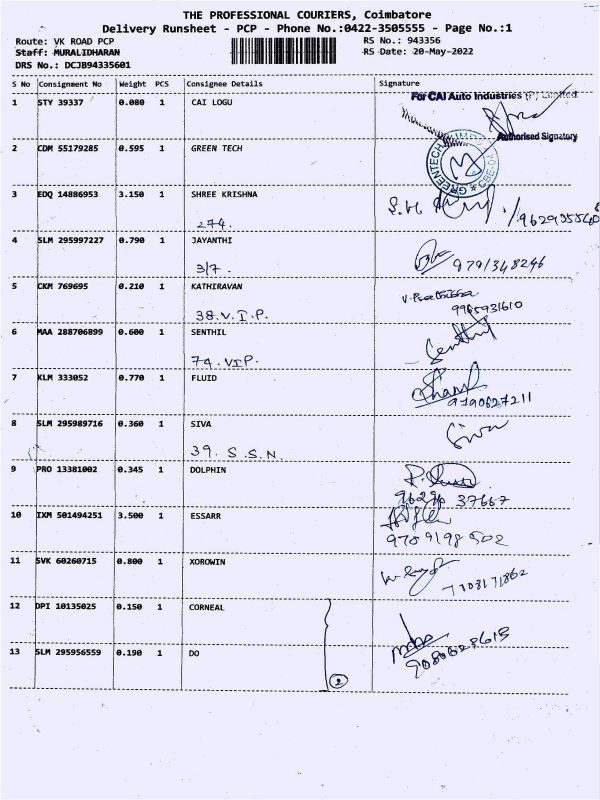 THE PROFESSIONAL COURIERS, Coimbatore
Delivery Runsheet - PCP - Phone No.:0422-3505555 - Page No.:1
Route: VK ROAD PCP RS No.: 943356
Staff: MURALIDHARAN RS Date: 20-May-2022
DRS No.: DCJB94335601
S No Consignment No Weight PCS Consignee Details Signature
For CAI Auto Industries (P) Limited
1 STY 39337 0.080 1 CAI LOGU
Authorised Signatory
2 CDM 55179285 0.595 1 GREEN TECH
GREENTECH CBE-04
3 EDQ 14886953 3.150 1 SHREE KRISHNA
274.
4 SLM 295997227 0.790 1 JAYANTHI
3/7. 9791348246
5 CKM 769695 0.210 1 KATHIRAVAN
38.V.I.P. 9965931610
6 MAA 288706899 0.600 1 SENTHIL Senthil
74. VIP.
7 KLM 333052 0.770 1 FLUID
9190627211
8 SLM 295989716 0.360 1 SIVA Siva
39. S.S.N.
9 PRO 13381002 0.345 1 DOLPHIN
37667
10 IXM 501494251 3.500 1 ESSARR
9789198502
11 SVK 60260715 0.800 1 XOROWIN
7708171862
12 DPI 10135025 0.150 1 CORNEAL
13 SLM 295956559 0.190 1 DO
2